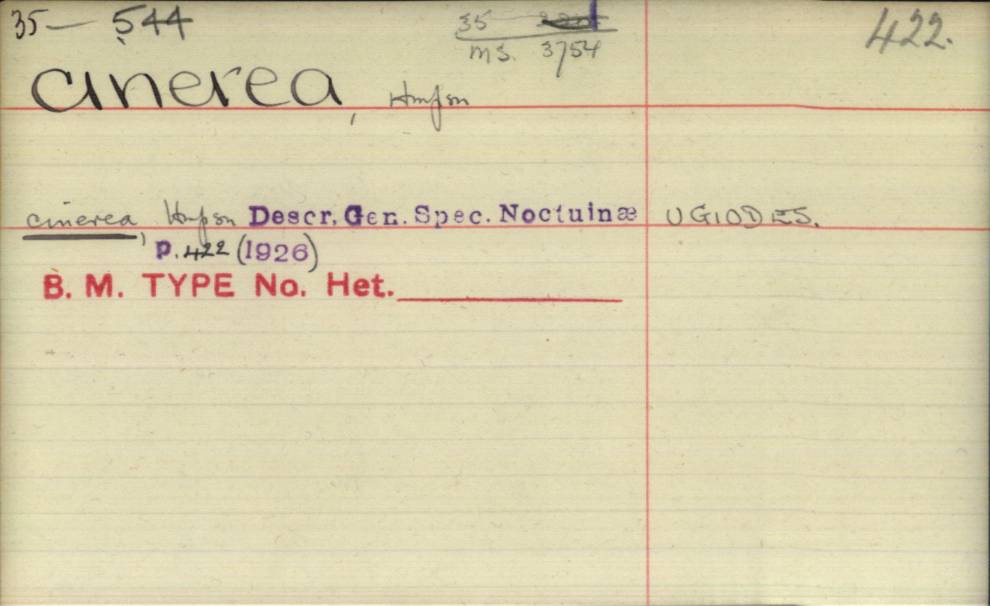 35— 544
35
422.
MS. 3754
cinerea, Hmpsn
cinerea, Hmpsn Descr. Gen. Spec. Noctuinæ UGIODES.
p. 422 (1926)
B. M. TYPE No. Het.